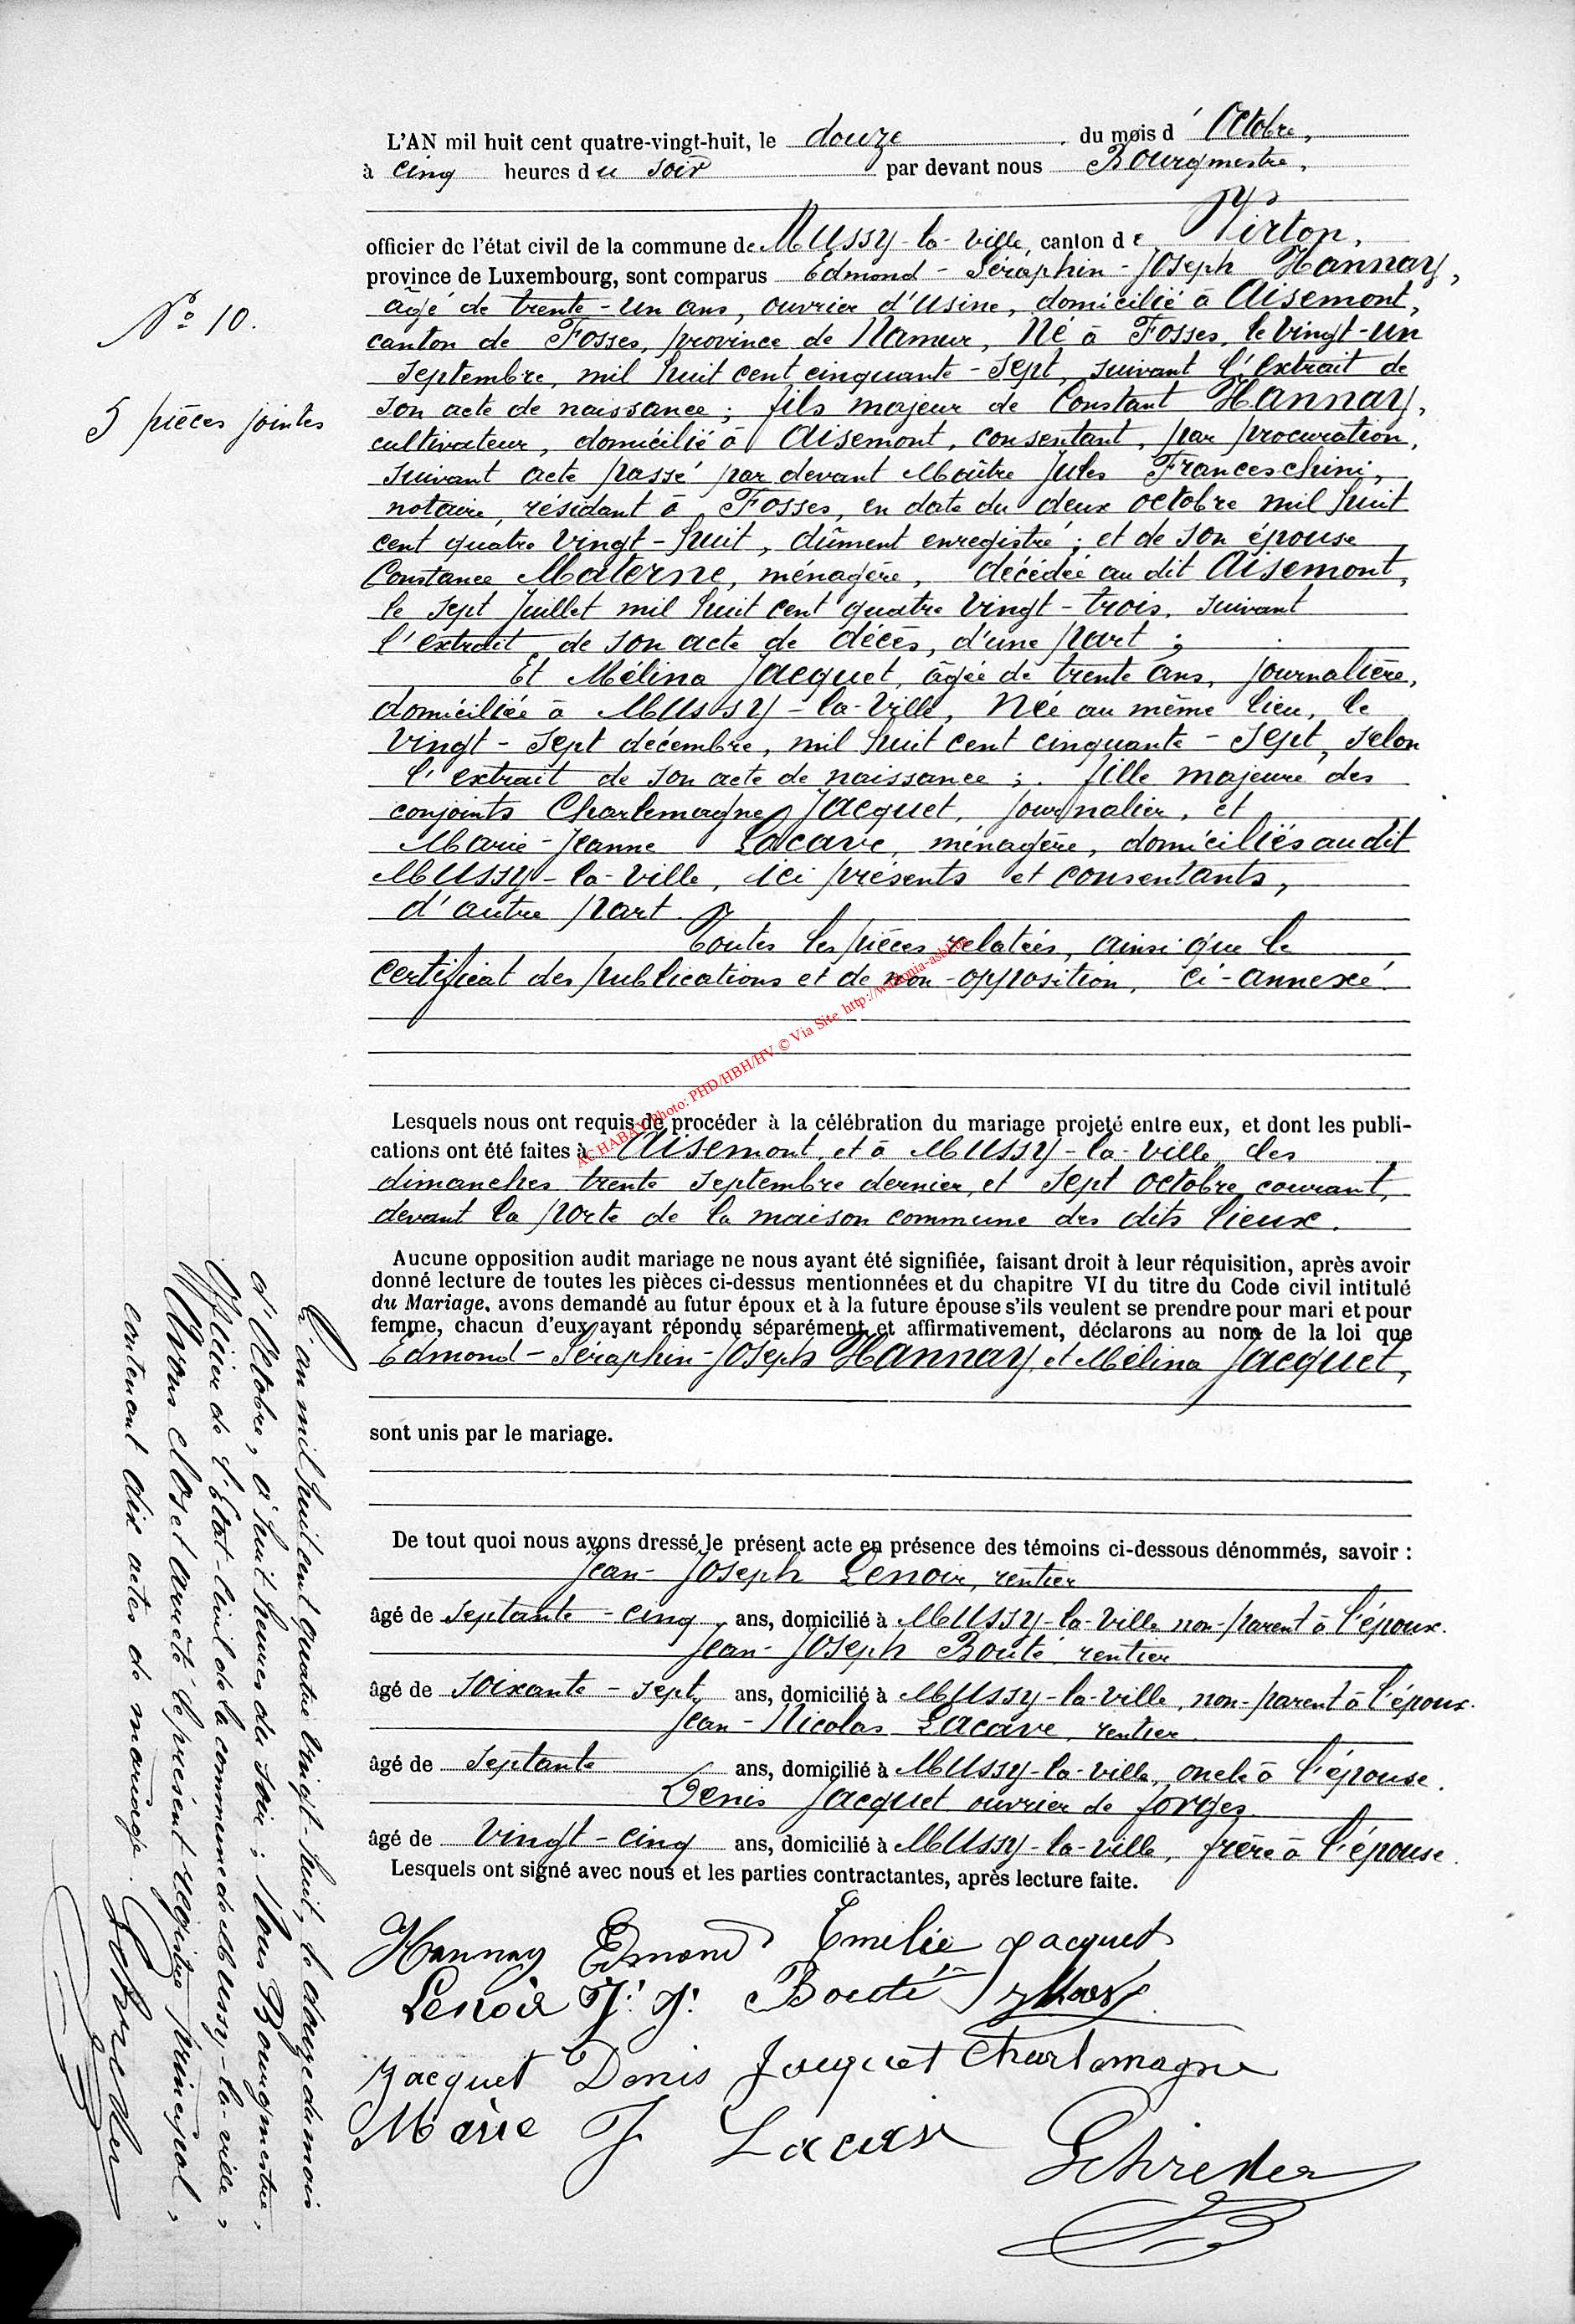 L'AN mil huit cent quatre-vingt-huit, le douze du mois d'Octobre,
à cinq heures du soir par devant nous Bourgmestre,
officier de l'état civil de la commune de Mussy-la-ville, canton de Virton,
province de Luxembourg, sont comparus Edmond-Séraphin-Joseph Hannay,
âgé de trente-un ans, ouvrier d'usine, domicilié à Aisemont,
N° 10.
canton de Fosses, province de Namur, Né à Fosses, le vingt-un
septembre, mil huit cent cinquante-sept, suivant l'extrait de
5 pièces jointes
son acte de naissance; fils majeur de Constant Hannay,
cultivateur, domicilié à Aisemont, consentant, par procuration,
suivant acte passé par devant Maître Jules Franceschini,
notaire, résidant à Fosses, en date du deux octobre mil huit
cent quatre vingt-huit, dûment enregistré; et de son épouse
Constance Materne, ménagère, décédée au dit Aisemont,
le sept Juillet mil huit cent quatre vingt-trois, suivant
l'extrait de son acte de décès, d'une part;
Et Mélina Jacquet, âgée de trente ans, journalière,
domiciliée à Mussy-la-Ville, Née au même lieu, le
vingt-sept décembre, mil huit cent cinquante-sept, selon
l'extrait de son acte de naissance; fille majeure des
conjoints Charlemagne Jacquet, journalier, et
Marie-Jeanne Lacave, ménagère, domiciliés audit
Mussy-la-ville, ici présents et consentants,
d'autre part.
Toutes les pièces relatées, ainsi que le
certificat des publications et de non-opposition, ci-annexé.
AC HABAY Photo: PHD/HBH/HV © Via Site http://wallonia-asbl.be
Lesquels nous ont requis de procéder à la célébration du mariage projeté entre eux, et dont les publi-
cations ont été faites à Aisemont, et à Mussy-la-ville, les
dimanches trente septembre dernier, et sept octobre courant,
devant la porte de la maison commune des dits lieux.
Aucune opposition audit mariage ne nous ayant été signifiée, faisant droit à leur réquisition, après avoir
donné lecture de toutes les pièces ci-dessus mentionnées et du chapitre VI du titre du Code civil intitulé
du Mariage, avons demandé au futur époux et à la future épouse s'ils veulent se prendre pour mari et pour
femme, chacun d'eux ayant répondu séparément et affirmativement, déclarons au nom de la loi que
Edmond-Séraphin-Joseph Hannay, et Mélina Jacquet,
sont unis par le mariage.
De tout quoi nous avons dressé le présent acte en présence des témoins ci-dessous dénommés, savoir :
Jean-Joseph Lenoir, rentier
âgé de septante-cinq ans, domicilié à Mussy-la-Ville non-parent à l'époux.
Jean-Joseph Bouté, rentier
âgé de soixante-sept ans, domicilié à Mussy-la-ville, non-parent à l'époux.
Jean-Nicolas Lacave, rentier.
âgé de septante ans, domicilié à Mussy-la-ville, oncle à l'épouse.
Denis Jacquet ouvrier de forges
âgé de vingt-cinq ans, domicilié à Mussy-la-ville, frère à l'épouse.
Lesquels ont signé avec nous et les parties contractantes, après lecture faite.
Hannay Edmond Emelie Jacquet
Lenoir J. J. Bouté
Jacquet Denis Jacquet Charlemagne
Marie J Lacave
Schreder
L'an mil huit cent quatre vingt-huit, le douze du mois
d'Octobre, à huit heures du soir; Nous Bourgmestre,
Officier de l'Etat-civil de la commune de Mussy-la-ville,
Avons clos et arrêté le présent registre principal,
contenant dix actes de mariage. Schreder